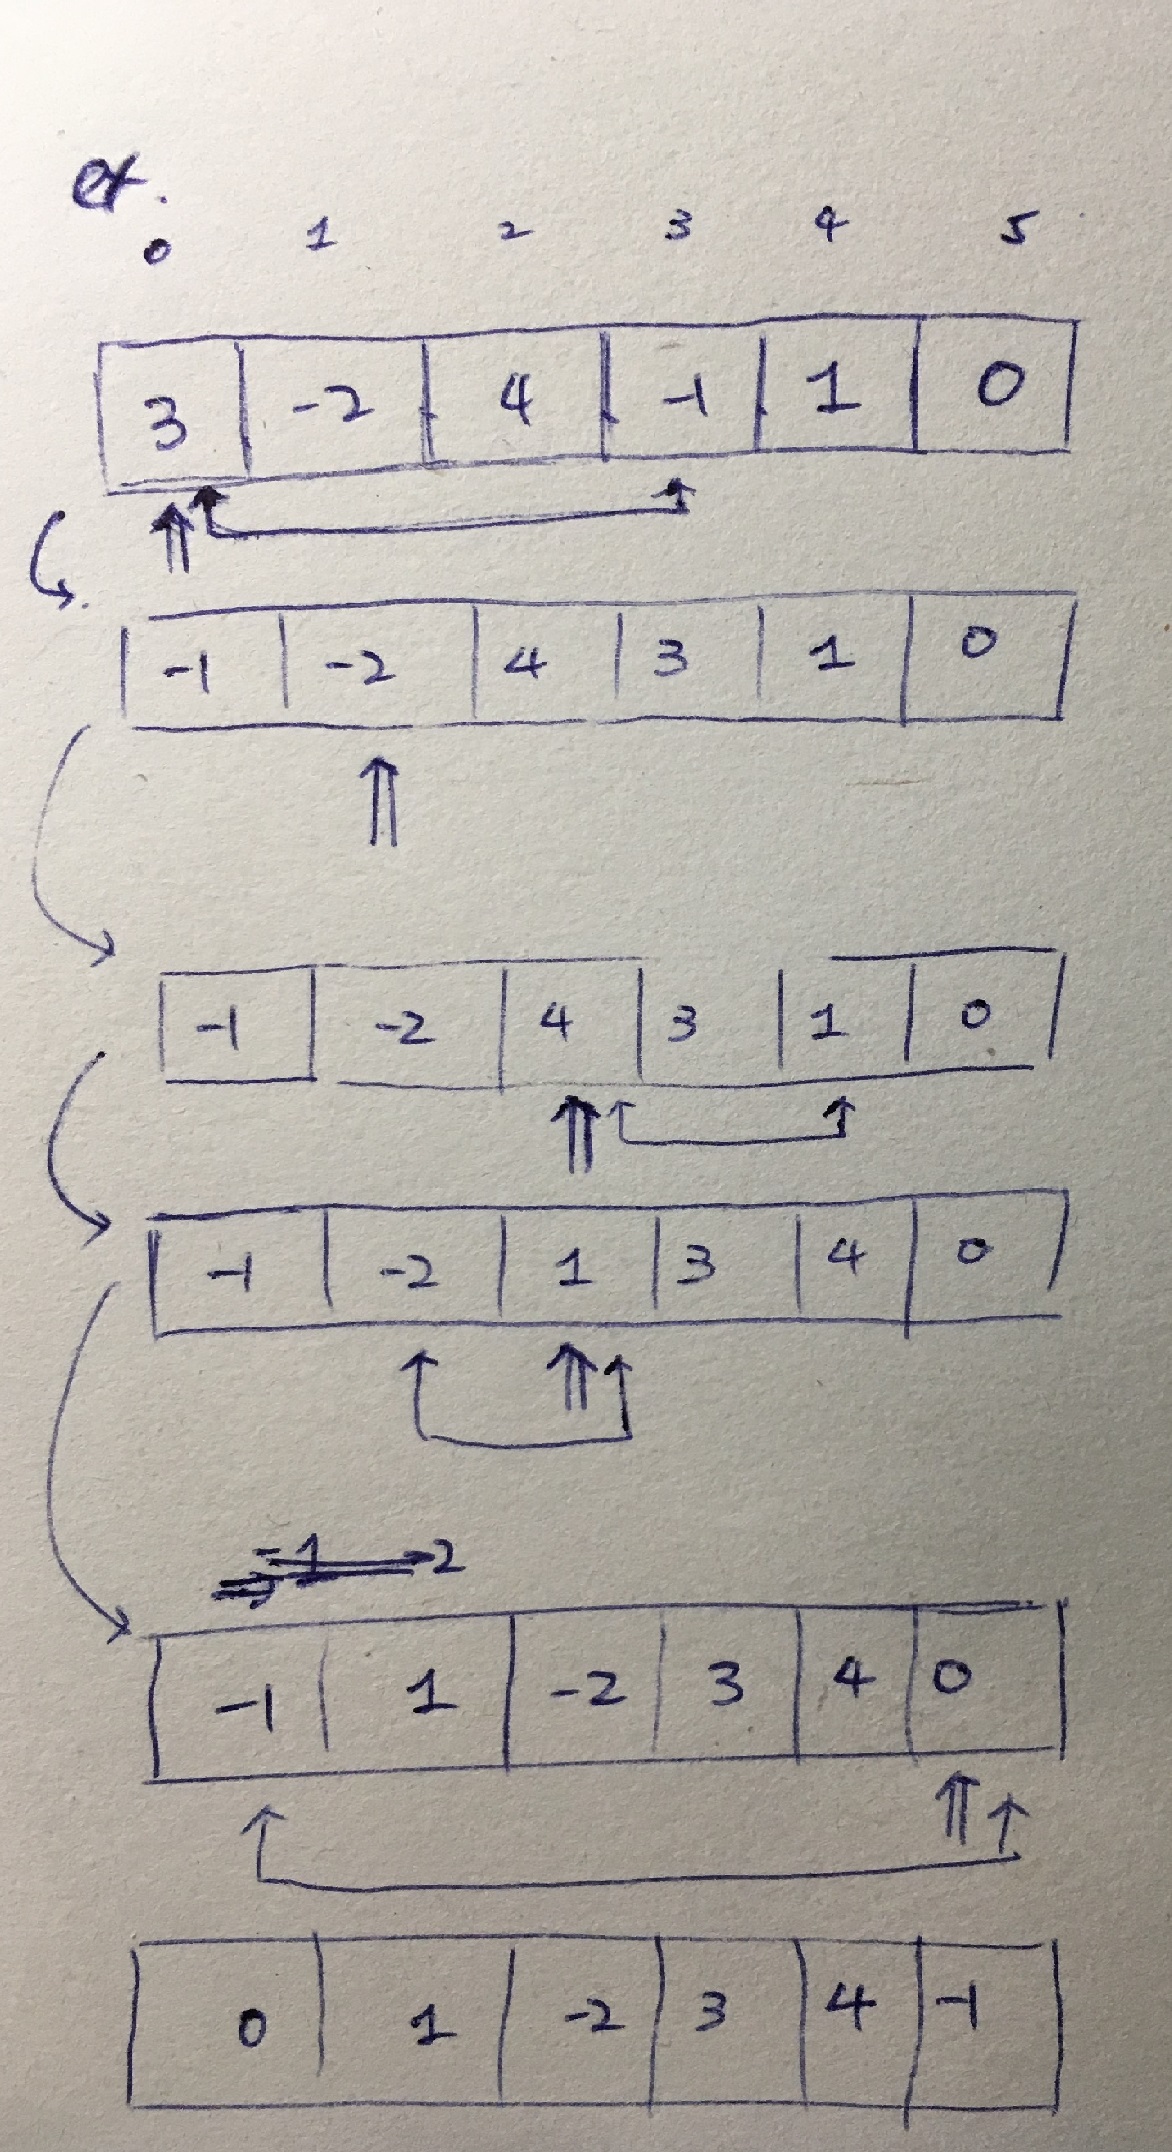 ex.
0 1 2 3 4 5
3 -2 4 -1 1 0
-1 -2 4 3 1 0
-1 -2 4 3 1 0
-1 -2 1 3 4 0
-1 1 -2 3 4 0
0 1 -2 3 4 -1